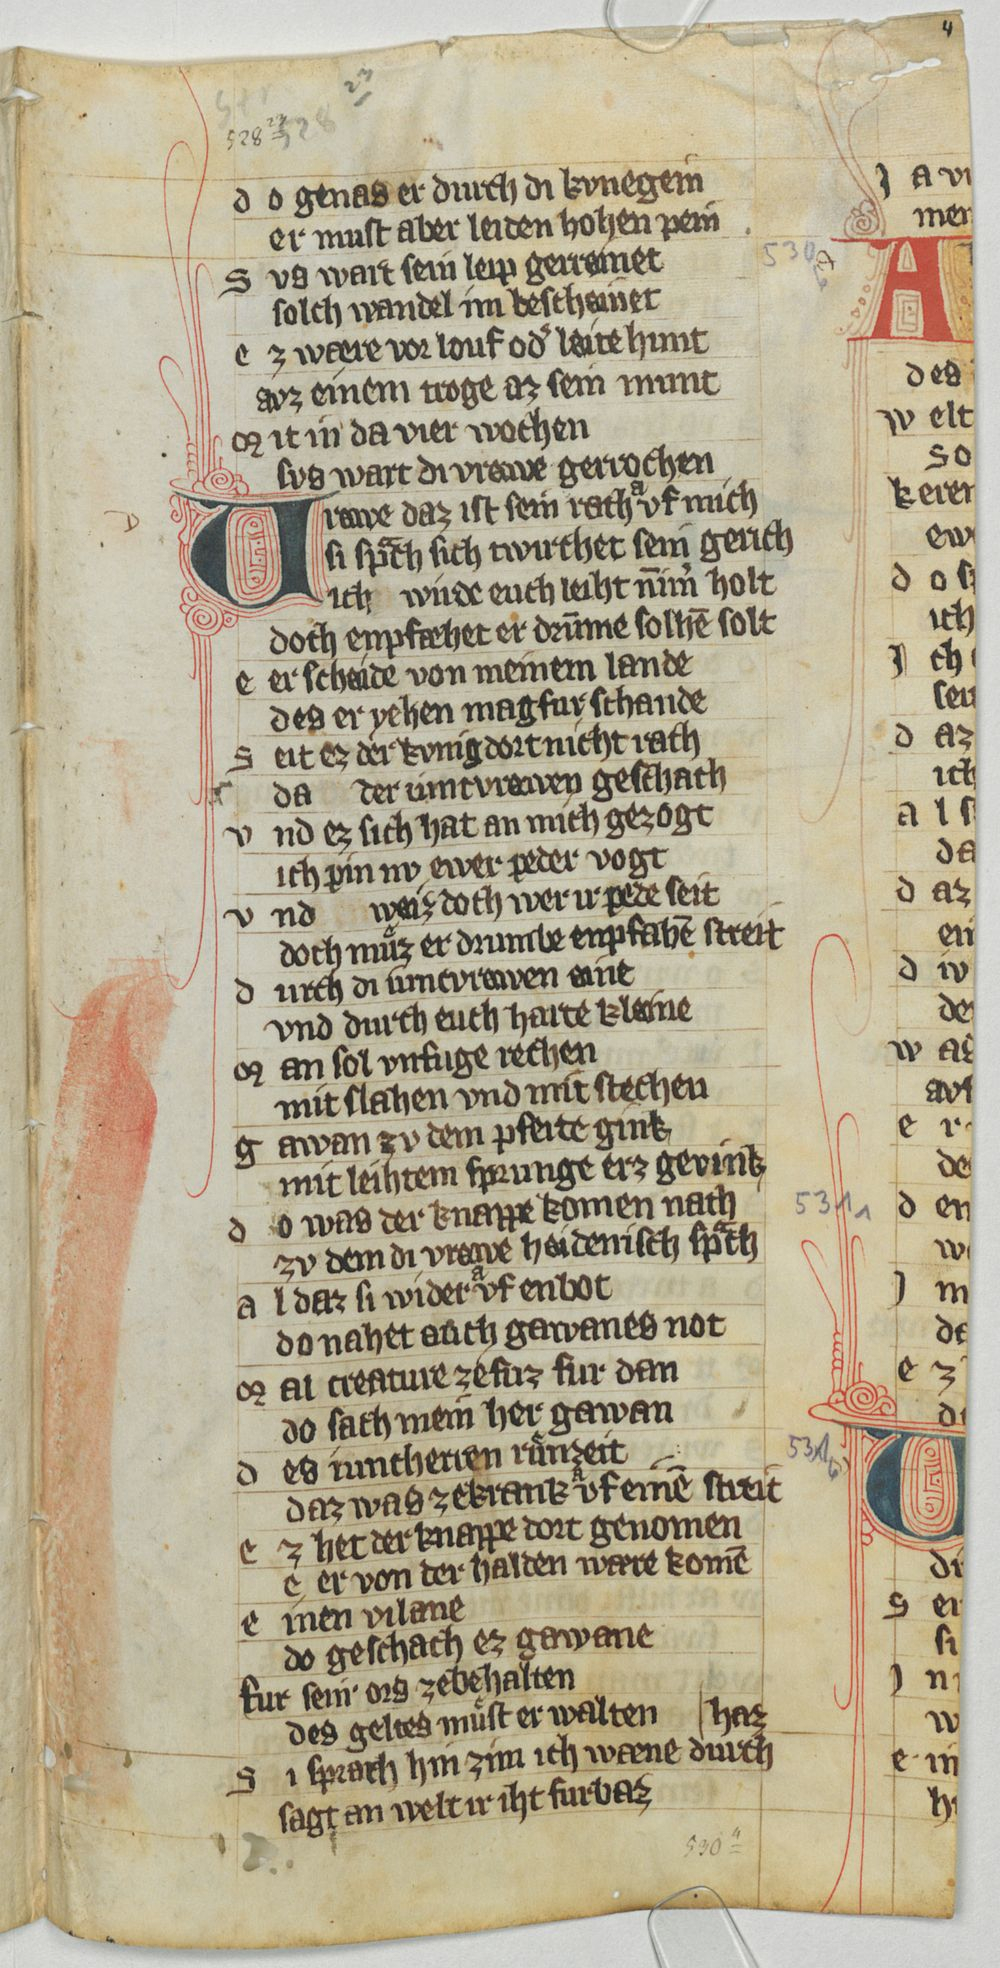 4
23
528
528 27
d o genas er durch di kvnegein
er must aber leiden hohen pein
S vs wart sein leip gerreinet
solch wandel im bescheinet
e z wære vor louf od' leite hunt
avz einem troge az sein munt
M it in da vier wochen
svs wart di vrowe gerrochen
Vrowe daz ist sein rach vͣf mich
si spͣch sich twirchet sein gerich
ich wirde euch leiht nīm̄ holt
doch enpfæhet er drūme solhē solt
e er scheide von meinem lande
des er yehen mag fur schande
S eit ez der kvnig dort nicht rach
da der iuncvrowen geschach
v nd ez sich hat an mich gezogt
ich pin nv ewer peder vogt
v nd weiz doch wer ir pede seit
doch muͤz er drumbe enpfahē streit
d urch di iuncvrowen eine
vnd durch euch harte kleine
M an sol vnfuge rechen
mit slahen vnd mit stechen
g awan zv dem pferde gink
mit leihtem sprunge erz gevink
d o was der knappe komen nach
zv dem di vrowe heidenisch spͣch
a l daz si wider vͣf enbot
do nahet auch gawanes not
M al creature ze fuz fur dan
do sach mein her gawan
d es iuncherren runzeit
daz was ze krank vͣf einē streit
e z het der knappe dort genomen
e er von der halden wære komē
e inen vilane
do geschach ez gawane
fur sein ors ze behalten
des geltes muͤst er walten | haz
S i sprach hin zim ich wæne durch
sagt an welt ir iht furbaz
530 4
J a vi
men
530
A
des
w elt
so
k eren
ew
d o s
ich
J ch
sei
d az
ich
a l s
da
d az
ein
d iv
der
w as
e r
de
531 1
d en
w
J m
da
e z
531
di
S ei
si
J n
w
e in
h